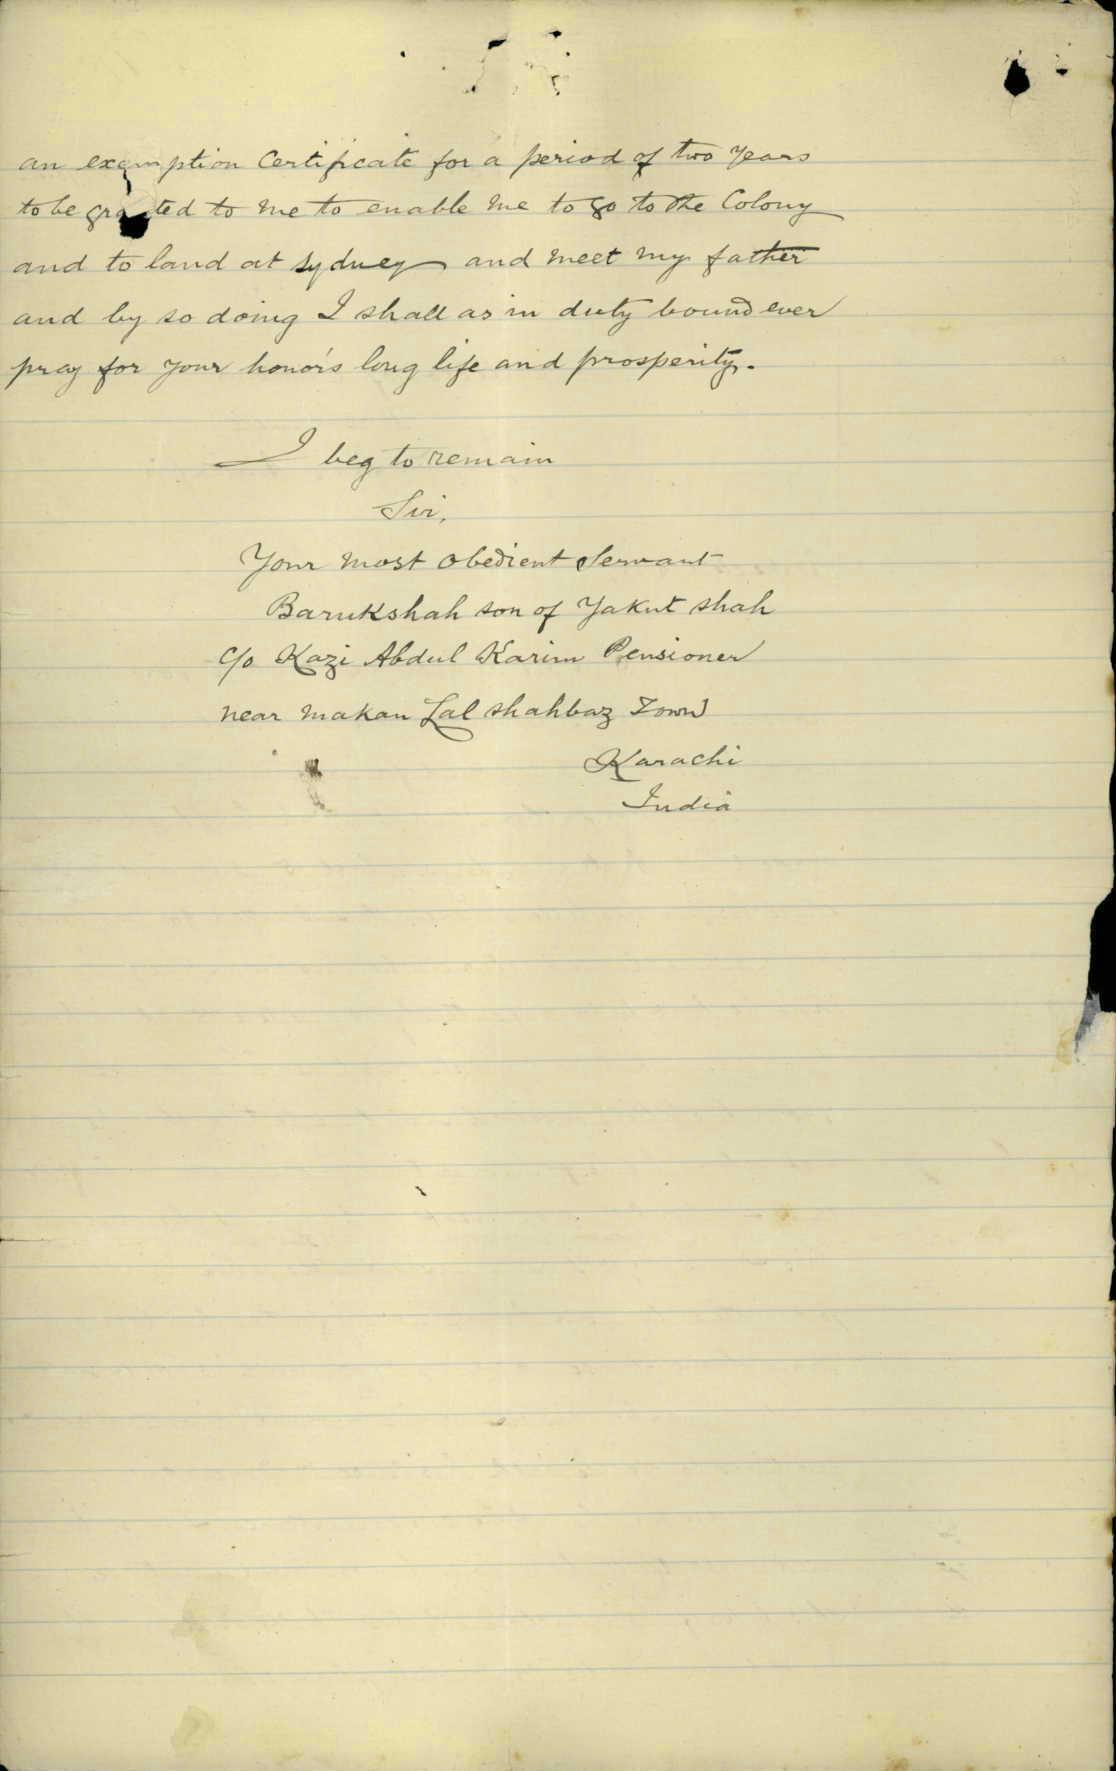 an exemption Certificate for a period of two years
to be granted to me to enable me to go to the Colony
and to land at Sydney and meet my father
and by so doing I shall as in duty bound ever
pray for your honor's long life and prosperity.
I beg to remain
Sir,
Your most obedient Servant
Barukshah son of Yakut shah
C/o Kazi Abdul Karim Pensioner
near makan Lal shahbaz Town
Karachi
India